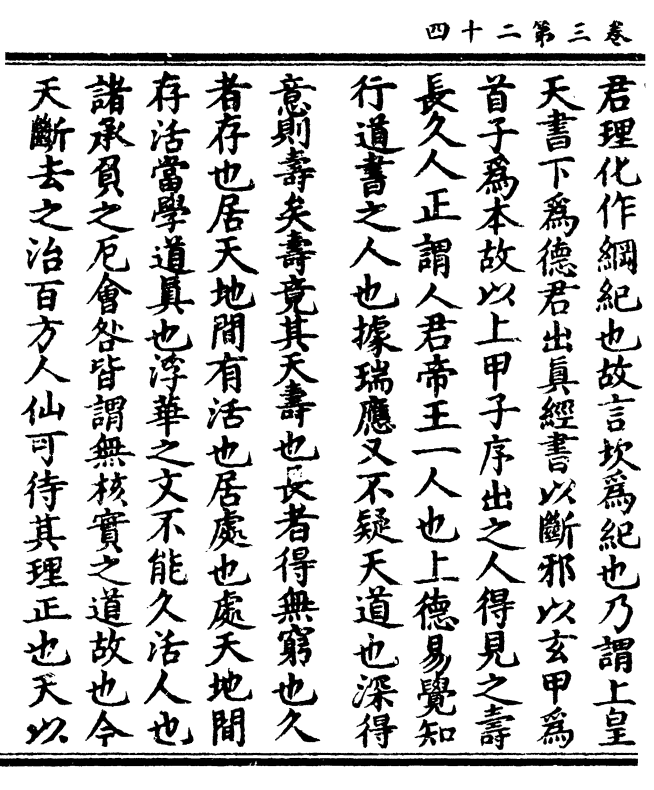 卷三第二十四
君理化作綱紀也故言坎為紀也乃謂上皇
天書下為德君出眞經書以斷邪以玄甲為
首子為本故以上甲子序出之人得見之壽
長久人正謂人君帝王一人也上德易覺知
行道書之人也據瑞應又不疑天道也深得
意則壽矣壽竟其天壽也長者得無窮也久
者存也居天地間有活也居處也處天地間
存活當學道眞也浮華之文不能久活人也
諸承負之厄會咎皆謂無核實之道故也今
天斷去之治百方人仙可待其理正也天以